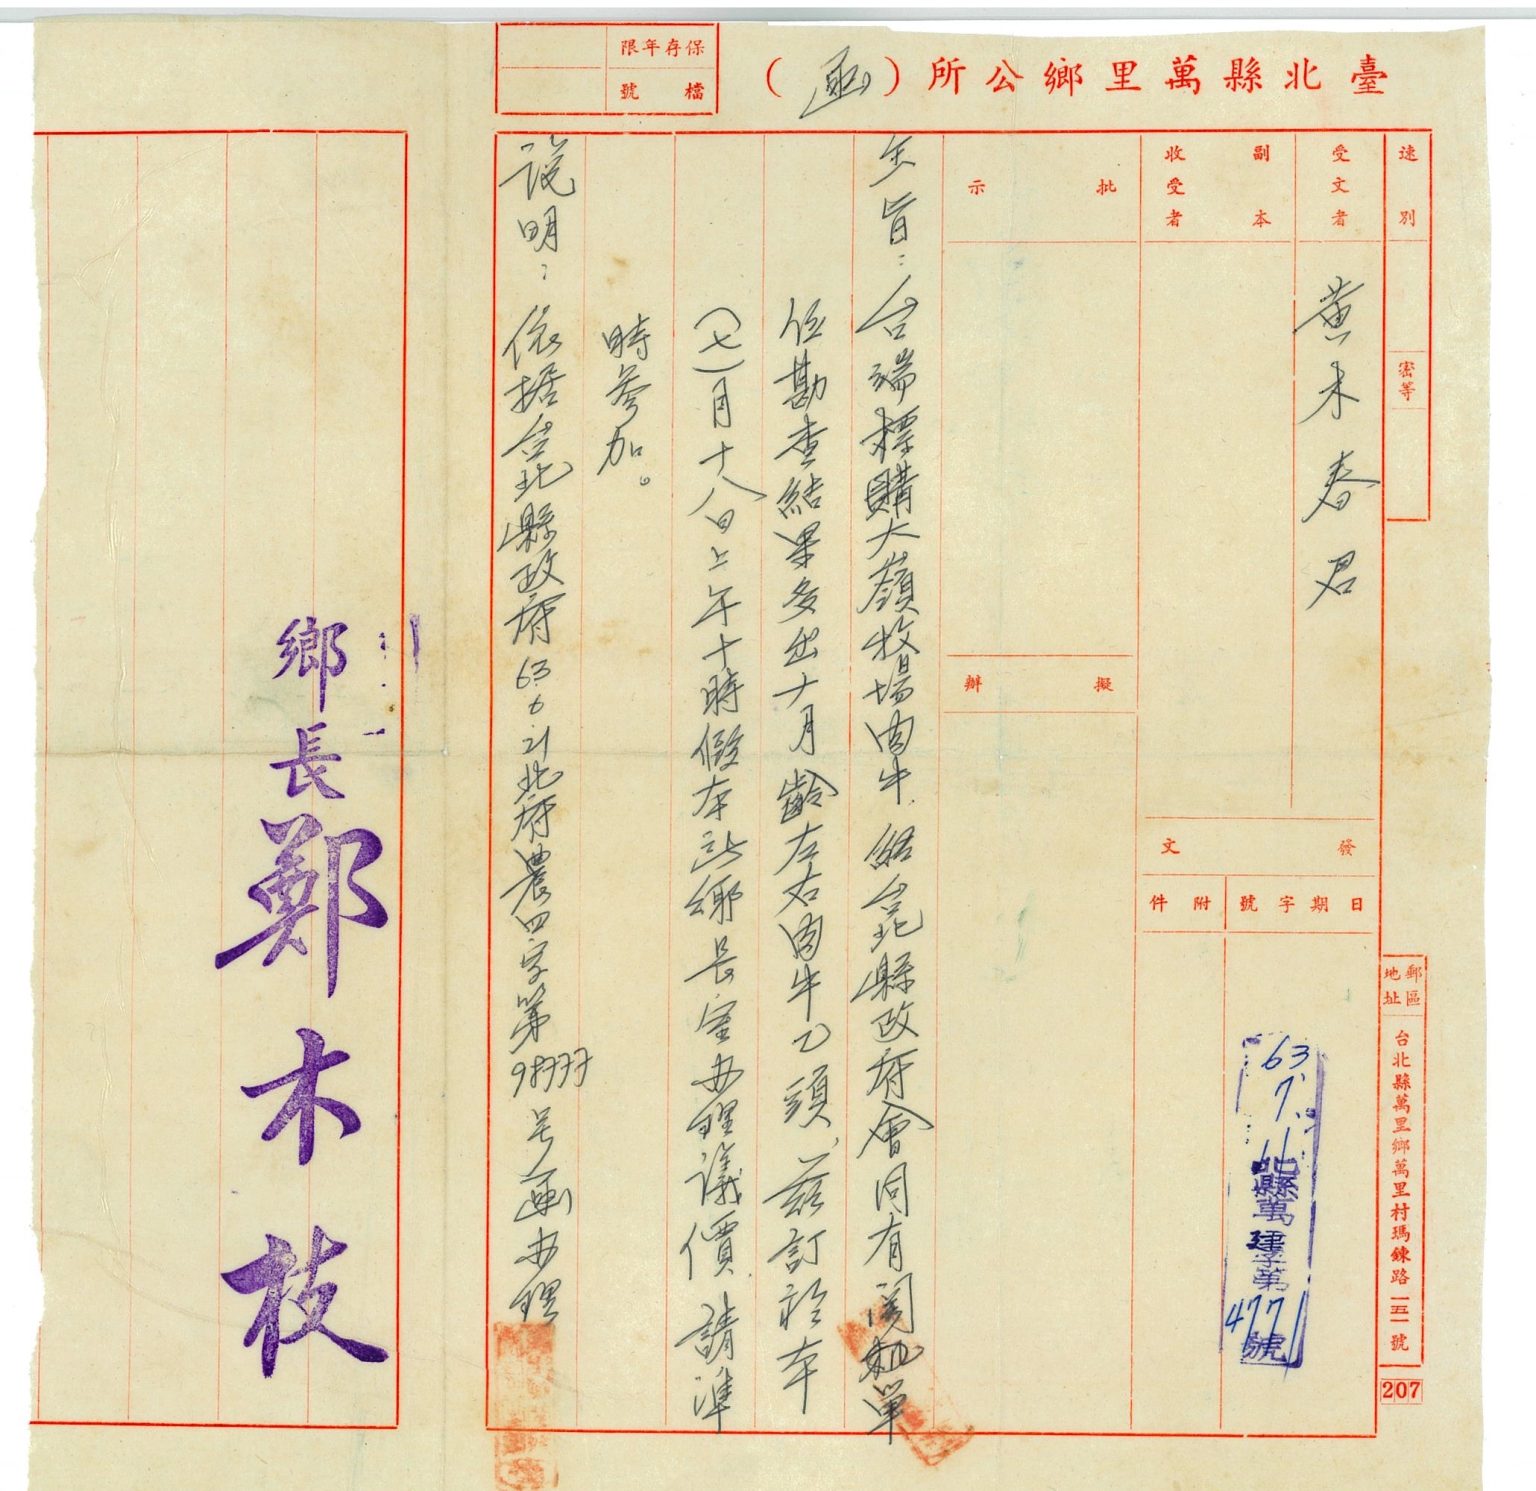 臺北縣萬里鄉公所（函）
保存年限
檔號
速別
密等
受文者
黃木春君
副本
收受者
批示
擬辦
發文
日期字號
附件
63 7 11
北縣萬建字第
477號
郵區
地址
台北縣萬里鄉萬里村瑪鍊路一五一號
207
主旨：台端標購大嶺牧場肉牛，經台北縣政府會同有関机單
位勘查結果多出十月齡左右肉牛乙頭，茲訂於本
(七)月十八日上午十時假本所鄉長室办理議價，請準
時參加。
說明：依据台北縣政府63 6 21北府農四字第98777号函办理
鄉長鄭木枝